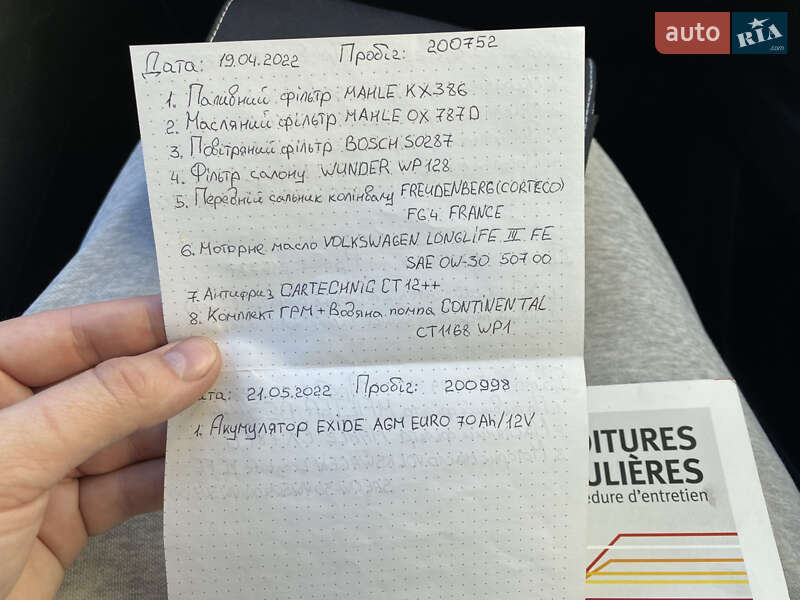 auto RIA.com
Дата: 19.04.2022 Пробіг: 200752
1. Паливний фільтр MAHLE KX386
2. Масляний фільтр MAHLE OX 787D
3. Повітряний фільтр BOSCH S0287
4. Фільтр салону WUNDER WP128
5. Передній сальник колінвалу FREUDENBERG(CORTECO)
FG4 FRANCE
6. Моторне масло VOLKSWAGEN LONGLIFE III FE
SAE 0W-30 507 00
7. Антифриз CARTECHNIC CT12++
8. Комплект ГРМ + Водяна помпа CONTINENTAL
CT1168 WP1
ата: 21.05.2022 Пробіг: 200998
1. Акумулятор EXIDE AGM EURO 70Ah/12V
OITURES
ULIÈRES
édure d'entretien